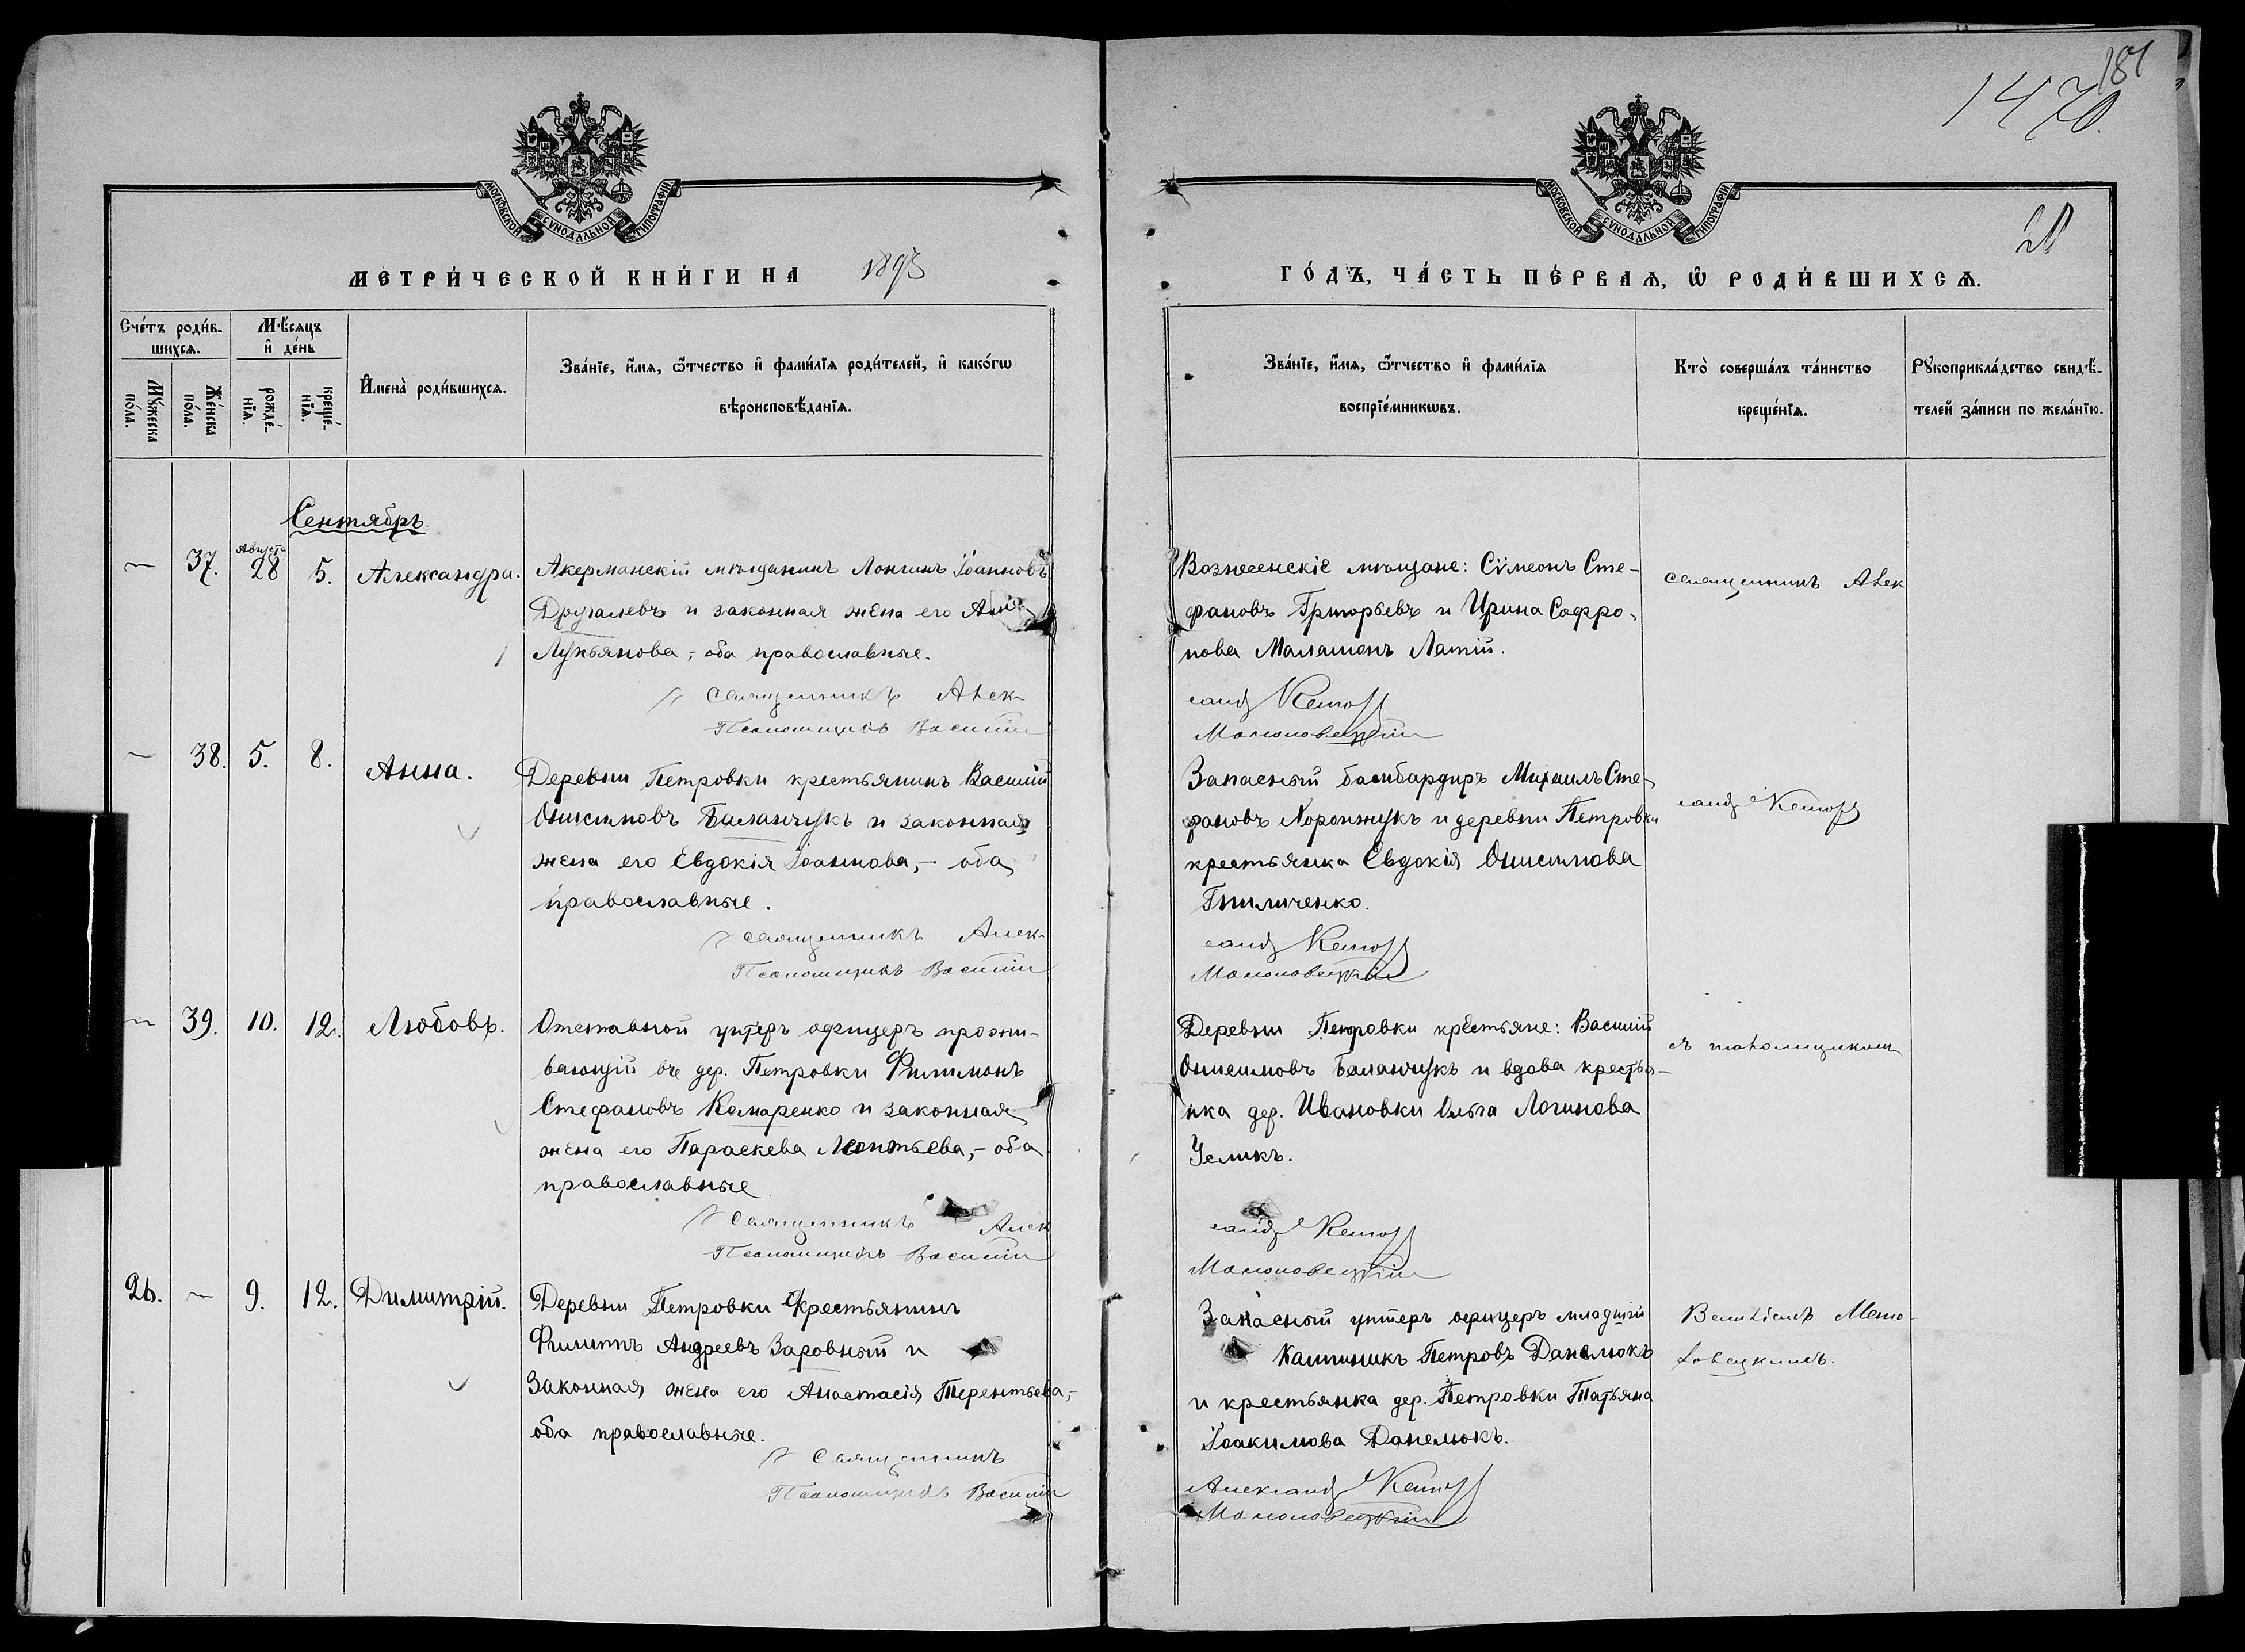 181
1470.
МОСКОВСКОЙ СУНОДАЛЬНОЙ ТИПОГРАФІИ
МОСКОВСКОЙ СУНОДАЛЬНОЙ ТИПОГРАФІИ
МЕТРИ́ЧЕСКОЙ КНИ́ГИ НА 1893
ГО́ДЪ, ЧА́СТЬ ПЕ́РВАѦ, Ѽ РОДИ́ВШИХСѦ.
Сче́тъ роди́в-
шихсѧ.
Мѣ́сѧцъ
и҆ де́нь
Мꙋ́жеска
по́ла.
Же́нска
по́ла.
рожде́-
нїѧ.
креще́-
нїѧ.
И҆мена̀ роди́вшихсѧ.
Зва́нїе, и҆́мѧ, ѻ҆́тчество и҆ фами́лїѧ роди́телей, и҆ како́гѡ
вѣроисповѣ́данїѧ.
Зва́нїе, и҆́мѧ, ѻ҆́тчество и҆ фами́лїѧ
воспрїе́мникѡвъ.
Кто̀ соверша́лъ та́инство
креще́нїѧ.
Рꙋкоприкла́дство свидѣ́-
телей за́писи по жела́нїю.
Сентябрь
37. Августа 28 5. Александра.
Акерманскій мѣщанинъ Лонгинъ Іоанновъ
и законная жена его
Лукьянова, - оба православные.
Священникъ Алек-
Псаломщикъ Василій
Вознесенскіе мѣщане: Сѵмеонъ Сте-
фановъ Григорьевъ и Ирина Софро-
нова
сандръ
священникъ Алек
38. 5. 8. Анна.
Деревни Петровки крестьянинъ Василій
Онисимовъ Баланчукъ и законная
жена его Евдокія Іоаннова, - оба
православные.
Священникъ Алек-
Псаломщикъ Василій
Запасный бомбардиръ Михаилъ Сте-
фановъ Хоронжукъ и деревни Петровки
крестьянка Евдокія Онисимова
Гниличенко.
сандръ
сандръ
39. 10. 12. Любовь.
Отставной унтеръ офицеръ прожи-
вающій въ дер. Петровки Филимонъ
Стефановъ Комаренко и законная
жена его Параскева Леонтьева, - оба
православные
Священникъ Алек
Псаломщикъ Василій
Деревни Петровки крестьяне: Василій
Онисимовъ Баланчукъ и вдова крестья-
нка дер. Ивановки Ольга Логинова
Усликъ.
сандръ
съ псаломщикомъ
26. 9. 12. Димитрій.
Деревни Петровки крестьянинъ
Филиппъ Андреевъ Заровный и
законная жена его Анастасія Терентьева, -
оба православные.
Священникъ
Псаломщикъ Василій
Запасный унтеръ офицеръ младшій
Каллиникъ Петровъ Данелюкъ
и крестьянка дер. Петровки Татьяна
Іоакимова Данелюкъ.
Александръ
Василіемъ